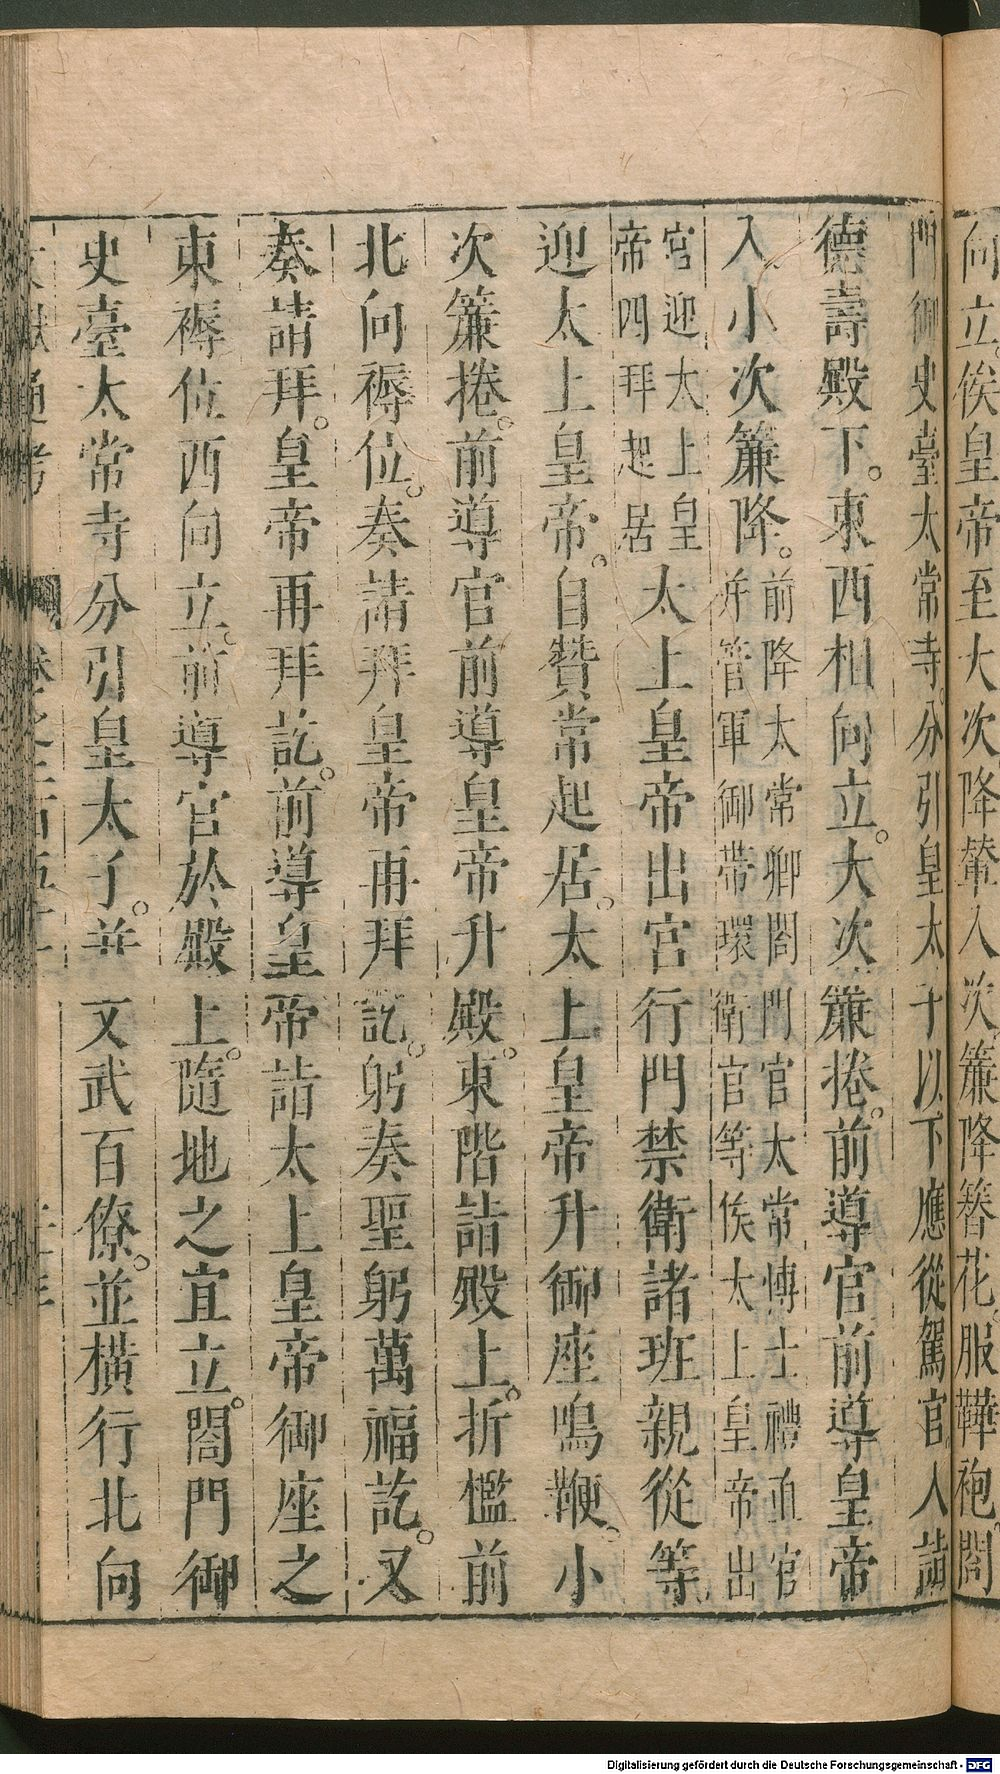 向立俟皇帝至大次降輦入次簾降簪花服鞾袍閤
門御史臺太常寺分引皇太子以下應從駕官人詣
德壽殿下東西相向立大次簾捲前導官前導皇帝
入小次簾降前降太常卿閤門官太常博士禮直官
并管軍御帶環衛官等俟太上皇帝出
宮迎太上皇
帝四拜起居
太上皇帝出宮行門禁衛諸班親從等
迎太上皇帝自贊常起居太上皇帝升御座鳴鞭小
次簾捲前導官前導皇帝升殿東階詣殿上折檻前
北向褥位奏請拜皇帝再拜訖躬奏聖躬萬福訖又
奏請拜皇帝再拜訖前導皇帝詣太上皇帝御座之
東褥位西向立前導官於殿上隨地之宜立閤門御
史臺太常寺分引皇太子并文武百僚並橫行北向
通考
Digitalisierung gefördert durch die Deutsche Forschungsgemeinschaft - DFG